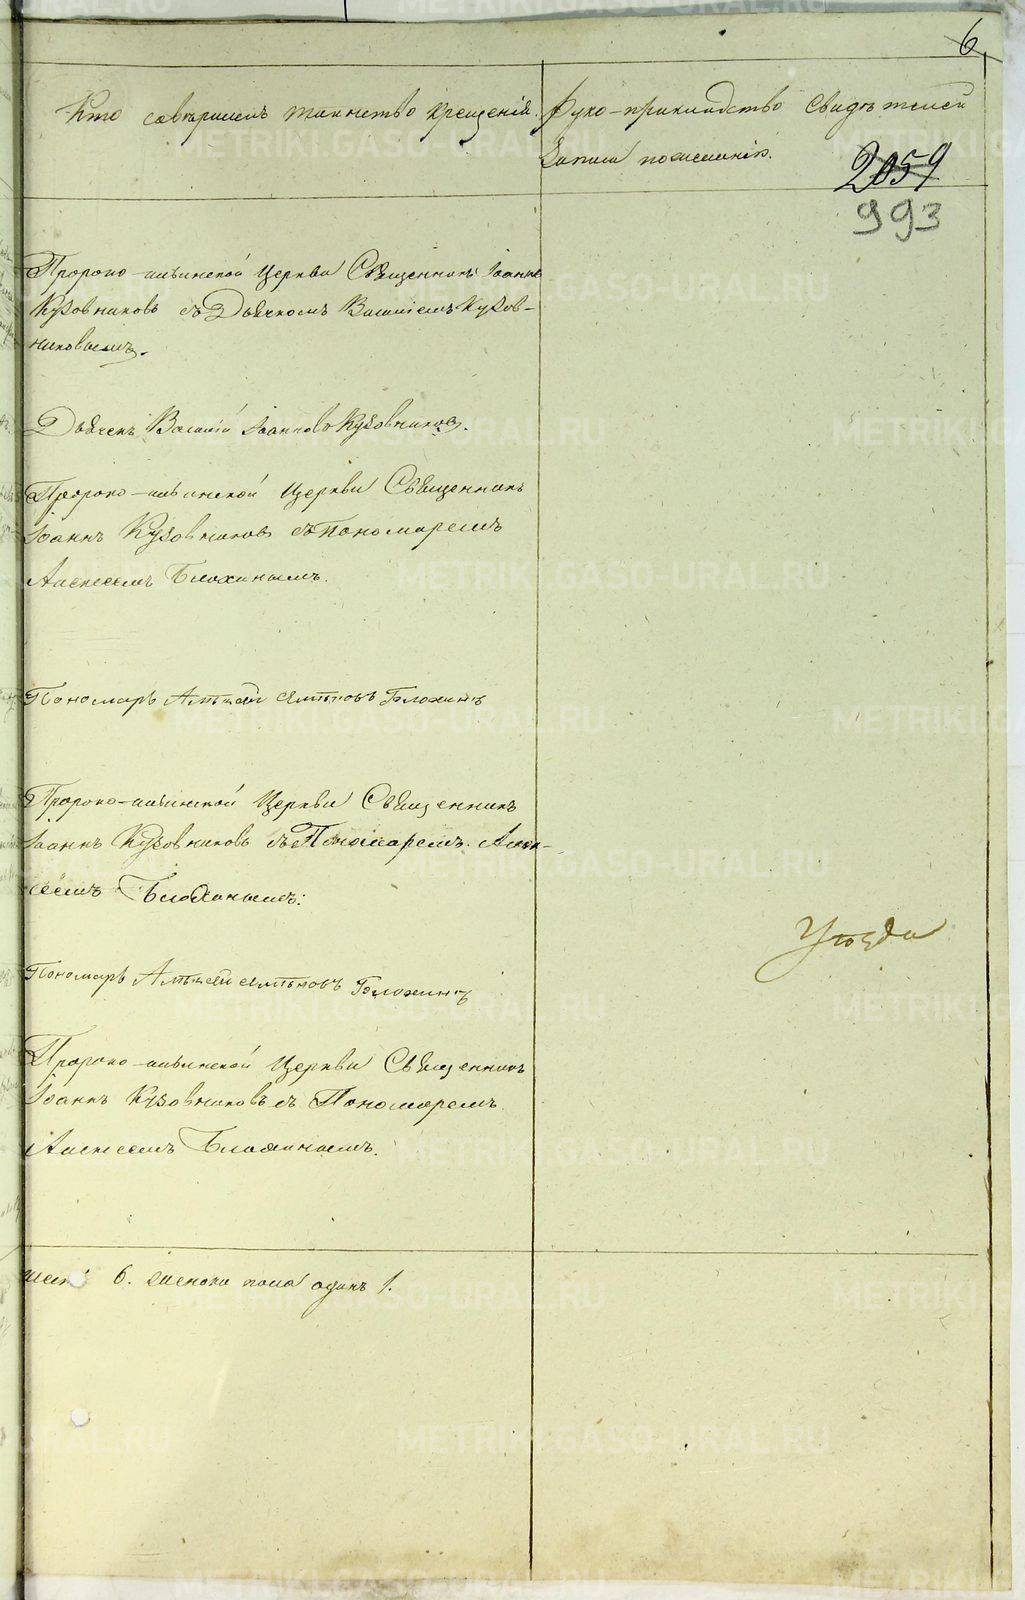 6
Кто совершалъ таинство крещенія.
Руко-прикладство свидѣтелей
записи по желанію.
2059
993
Пророко-ильинской Церкви Священникъ Іоаннъ
Кузовниковъ съ Дьячкомъ Василіемъ Кузов-
никовымъ.
Дьячекъ Василій Іоанновъ Кузовниковъ.
Пророко-ильинской Церкви Священникъ
Іоаннъ Кузовниковъ съ Пономаремъ
Алексеемъ Блохинымъ.
Пономарь Алѣксѣй Блохинъ
Пророко-ильинской Церкви Священникъ
Іоаннъ Кузовниковъ съ Пономаремъ Алек-
сеемъ Блохинымъ:
Уѣзда
Пономарь Алѣксѣй Блохинъ
Пророко-ильинской Церкви Священникъ
Іоаннъ Кузовниковъ съ Пономаремъ
Алексеемъ Блохинымъ.
6. женска пола одинъ 1.